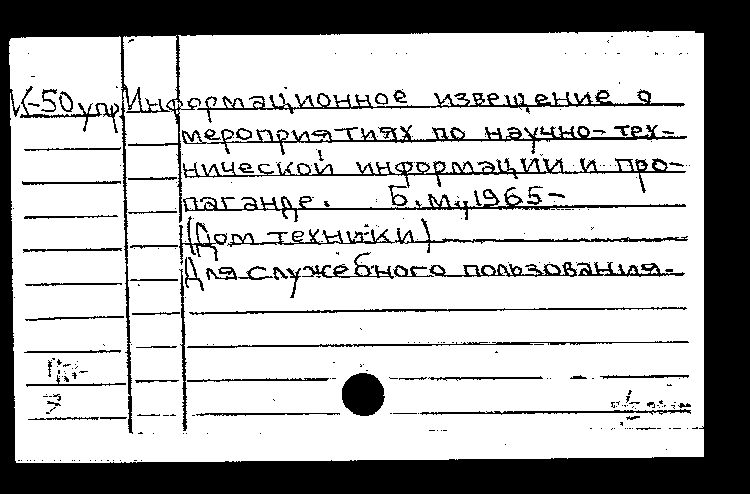 К-50 упр Информационное извещение о
мероприятиях по научно-тех-
нической информации и про-
паганде. Б.м., 1965-
(Дом техники)
Для служебного пользования.